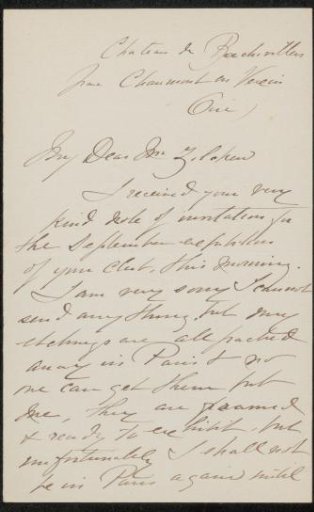 Chateau de Bachivillers
par Chaumont en Vexin
Oise
My Dear Mr. Zilcken
I received your very
kind note of invitation for
the September exhibition
of your club, this morning.
I am very sorry I cannot
send any thing, but my
etchings are all packed
away in Paris & no
one can get them but
me, they are framed
& ready to exhibit, but
unfortunately I shall not
be in Paris again until